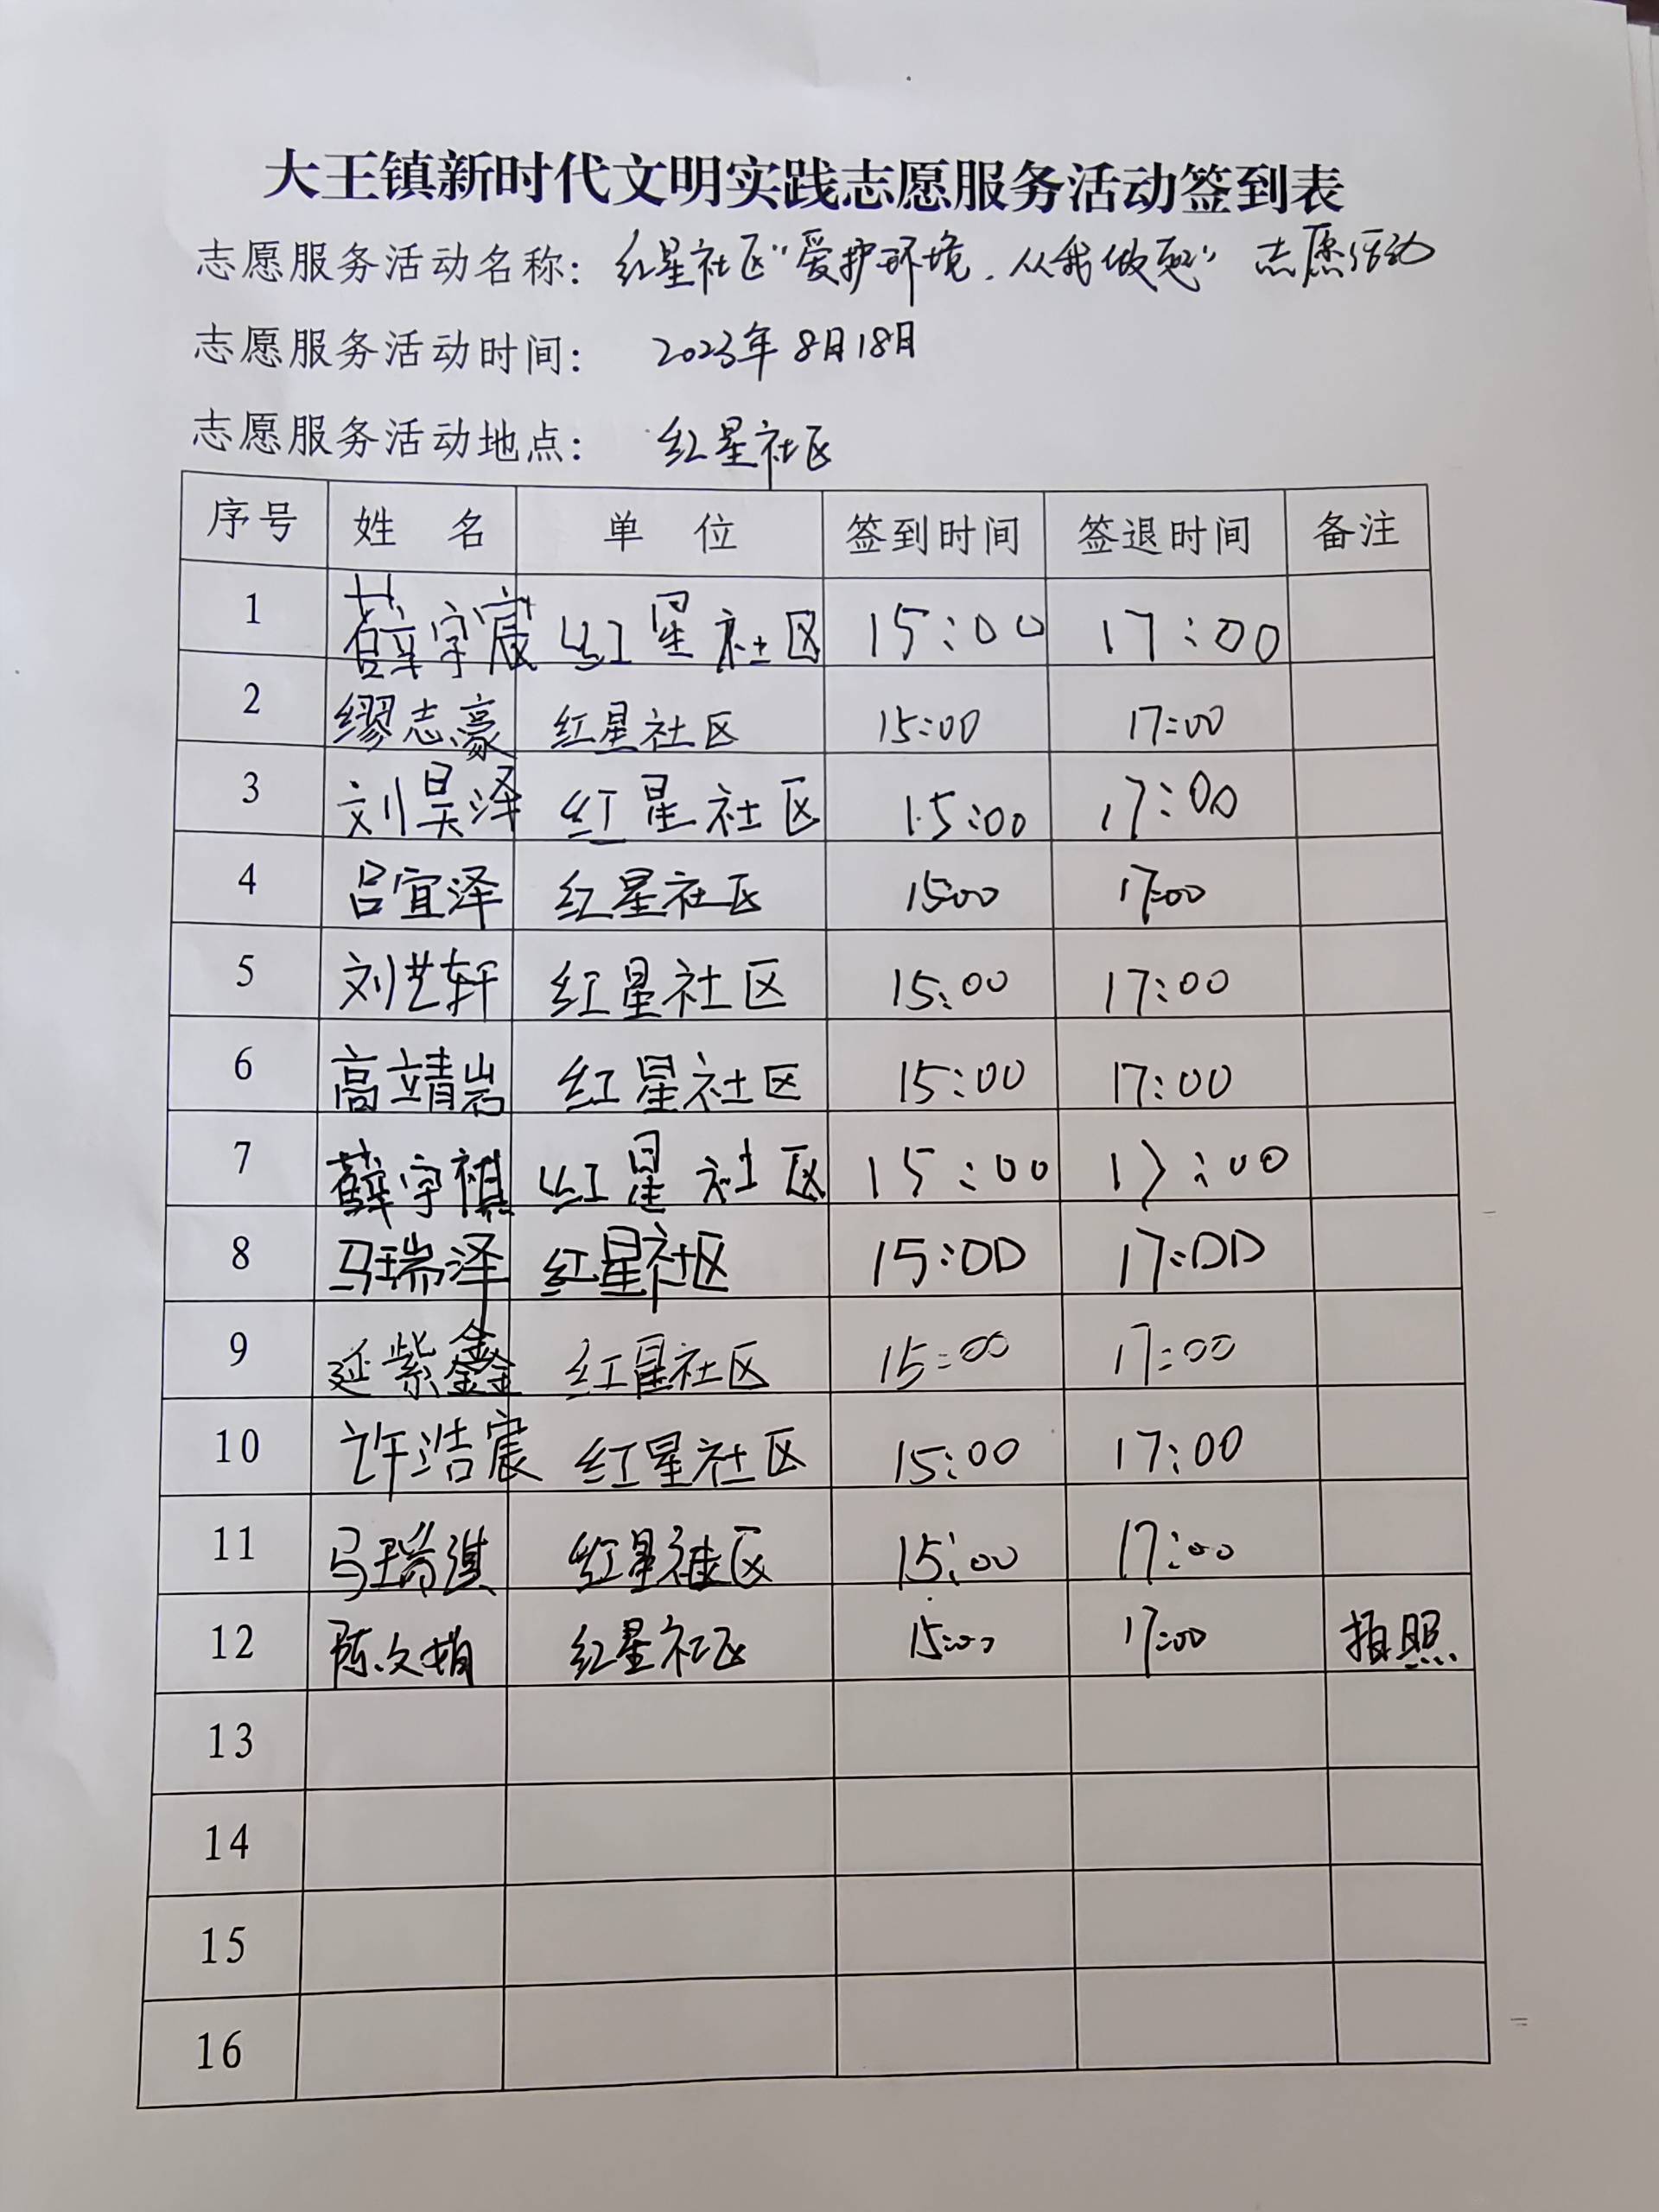 大王镇新时代文明实践志愿服务活动签到表
志愿服务活动名称: 红星社区“爱护环境.从我做起”志愿活动
志愿服务活动时间: 2023年8月18日
志愿服务活动地点: 红星社区
序号 姓 名 单 位 签到时间 签退时间 备注
1 薛宇宸 红星社区 15:00 17:00
2 缪志豪 红星社区 15:00 17:00
3 刘昊泽 红星社区 15:00 17:00
4 吕宜泽 红星社区 15:00 17:00
5 刘艺轩 红星社区 15:00 17:00
6 高靖岩 红星社区 15:00 17:00
7 薛宇祺 红星社区 15:00 17:00
8 马瑞泽 红星社区 15:00 17:00
9 延紫鑫 红星社区 15:00 17:00
10 许浩宸 红星社区 15:00 17:00
11 马瑞淇 红星社区 15:00 17:00
12 陈文娟 红星社区 15:00 17:00 拍照
13
14
15
16